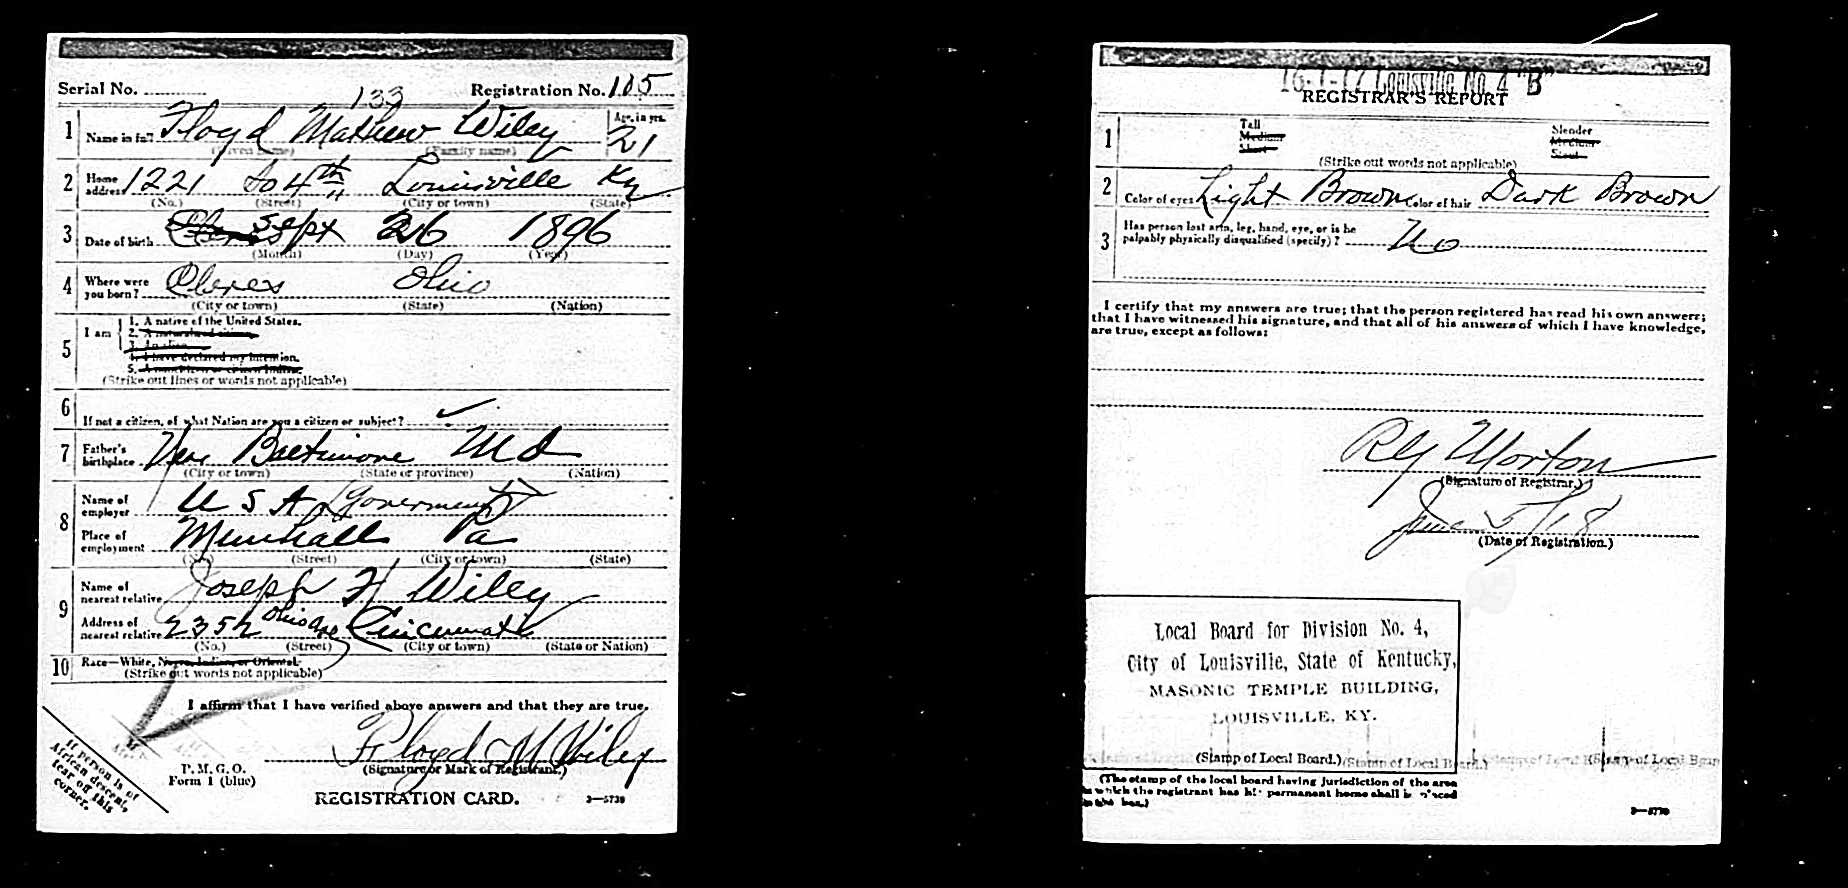 Serial No.
133
Registration No. 105
1 Name in full Floyd Mathew Wiley
(Given name) (Family name)
Age, in yrs. 21
2 Home address 1221 So 4th St Louisville Ky
(No.) (Street) (City or town) (State)
3 Date of birth Sept 26 1896
(Month) (Day) (Year)
4 Where were you born? Ohio
(City or town) (State) (Nation)
5 I am
1. A native of the United States.
2. A naturalized citizen
3. An alien
4. I have declared my intention.
5.
(Strike out lines or words not applicable)
6 If not a citizen, of what Nation are you a citizen or subject? ✓
7 Father's birthplace Near Baltimore Md
(City or town) (State or province) (Nation)
8 Name of employer U S A (Government)
Place of employment Munhall Pa
(No.) (Street) (City or town) (State)
9 Name of nearest relative Joseph H Wiley
Address of nearest relative 2352 Ohio Ave Cincinnati
(No.) (Street) (City or town) (State or Nation)
10 Race—White, Negro, Indian, or Oriental.
(Strike out words not applicable)
I affirm that I have verified above answers and that they are true.
Floyd M Wiley
(Signature or Mark of Registrant.)
P. M. G. O.
Form 1 (blue)
REGISTRATION CARD.
3—5739
If person is of
African descent,
tear off this
corner.
16-1-17 Louisville No. 4 "B"
REGISTRAR'S REPORT
1 Tall Slender
Medium Medium
Short Stout
(Strike out words not applicable)
2 Color of eyes Light Brown Color of hair Dark Brown
3 Has person lost arm, leg, hand, eye, or is he
palpably physically disqualified (specify)? No
I certify that my answers are true; that the person registered has read his own answers;
that I have witnessed his signature, and that all of his answers of which I have knowledge,
are true, except as follows:
Morton
(Signature of Registrar.)
June 5/18
(Date of Registration.)
Local Board for Division No. 4,
City of Louisville, State of Kentucky,
MASONIC TEMPLE BUILDING,
LOUISVILLE, KY.
(Stamp of Local Board.) (Stamp of Local Board.)
(The stamp of the local board having jurisdiction of the area
in which the registrant has his permanent home shall be placed
in this box.)